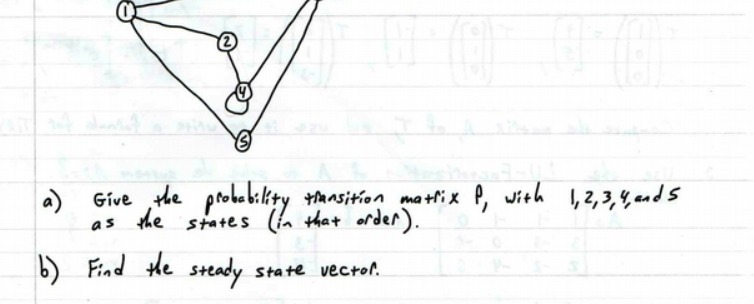 1
2
4
5
a) Give the probability transition matrix P, with 1,2,3,4, and 5
as the states (in that order).
b) Find the steady state vector.